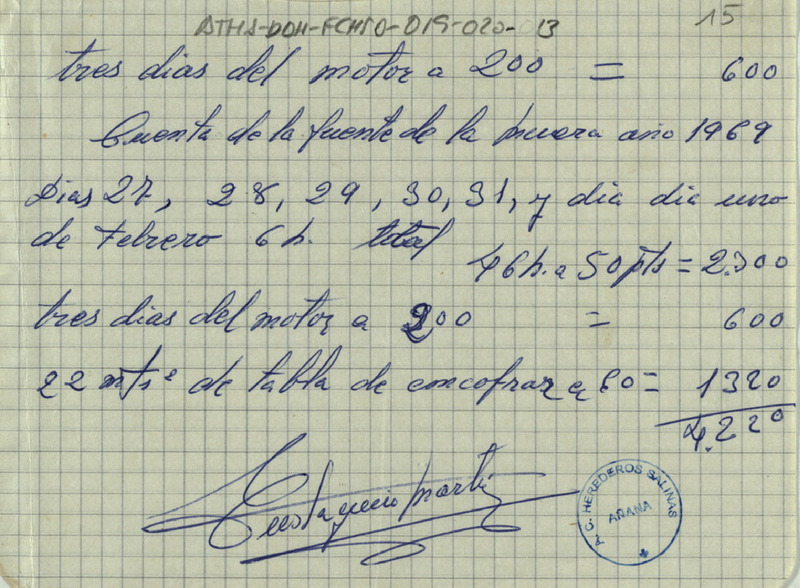 ATHA-DOH-FCHSO-019-020-013
15
tres dias del motor a 200 = 600
Cuenta de la fuente de la muera año 1969
Dias 27, 28, 29, 30, 31, y dia dia uno
de Febrero 6 h. total
46 h. a 50 pts = 2.300
tres dias del motor a 200 = 600
22 mts² de tabla de encofrar a 60 = 1320
4.220
Eustaquio Martin
P. C. HEREDEROS SALINAS
AÑANA